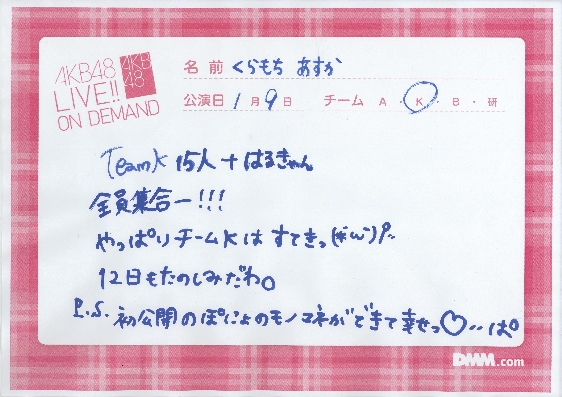 AKB48
LIVE!!
ON DEMAND
AKB
48
名前 くらもち あすか
公演日 1月9日 チーム A・K・B・研
TeamK 15人+はるきゃん
全員集合ー!!!
やっぱりチームKは すてきっ(*'ω')
12日もたのしみだわ。
P.S. 初公開のぽにょのモノマネができて幸せっ♡‥ぱ。
DMM.com